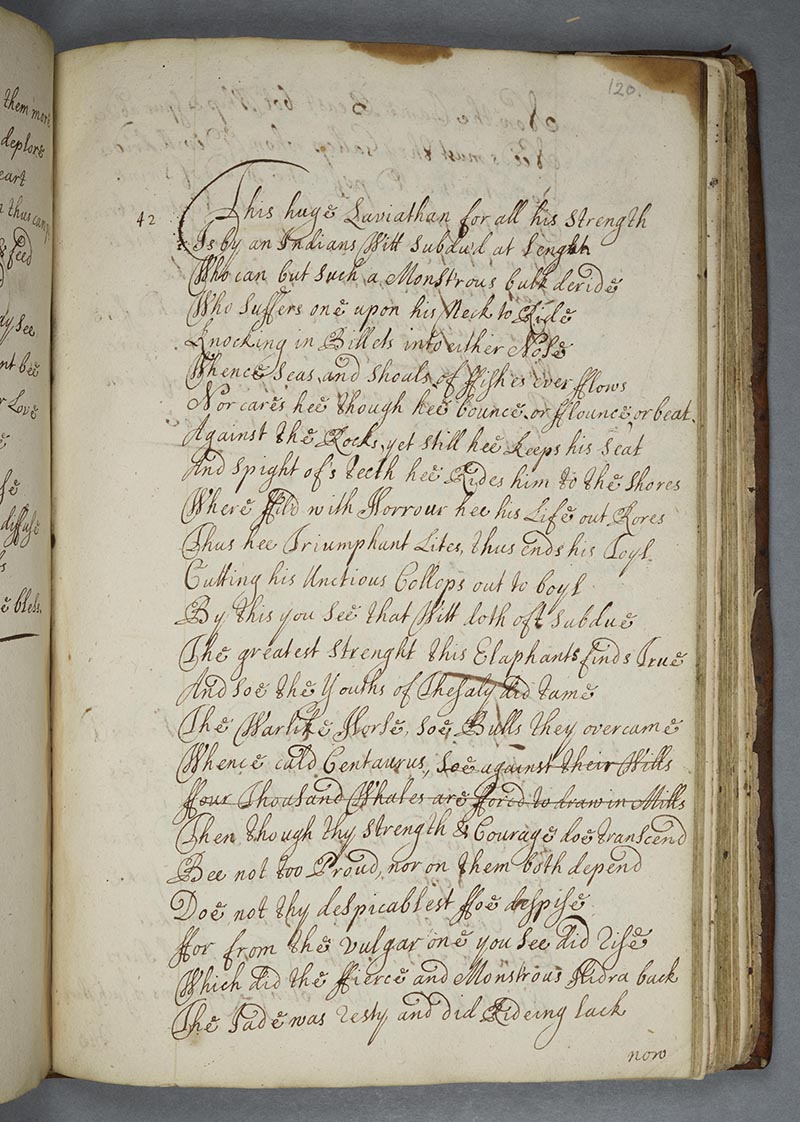 them more
deplore
eart
thus
feed
dy see
nt bee
r Love
e
se
diffuse
s
e bless.
120.
42
This huge Laviathan for all his strength
Is by an Indians Witt subdu'd at lenght
Who can but such a Monstrous bulk deride
Who suffers one upon his Neck to Ride
Knocking in Billets into either Nose
Whence Seas, and shoals of ffishes ever fflows
Nor cares hee though hee bounce, or fflounce, or beat
Against the Rocks, yet still hee keeps his seat
And spight of's teeth hee Rides him to the shores
Where ffild with Horrour hee his Life out Rores
Thus hee Triumphant Lites, thus ends his Toyl
Cutting his Unctious Collops out to boyl
By this you see that Witt doth oft subdue
The greatest strenght this Elaphants finds True
And soe the Youths of Thesaly did tame
The Warlike Horse, soe Bulls they overcame
Whence cald Centaurus, soe against their Wills
ffour Thousand Whales are fforcd to draw in Mills
Then though thy strength & Courage doe transcend
Bee not too Proud, nor on them both depend
Doe not thy despicablest ffoe despise
ffor from the vulgar one you see did rise
Which did the ffierce and Monstrous Hidra back
The Jade was resty and did Rideing lack
now